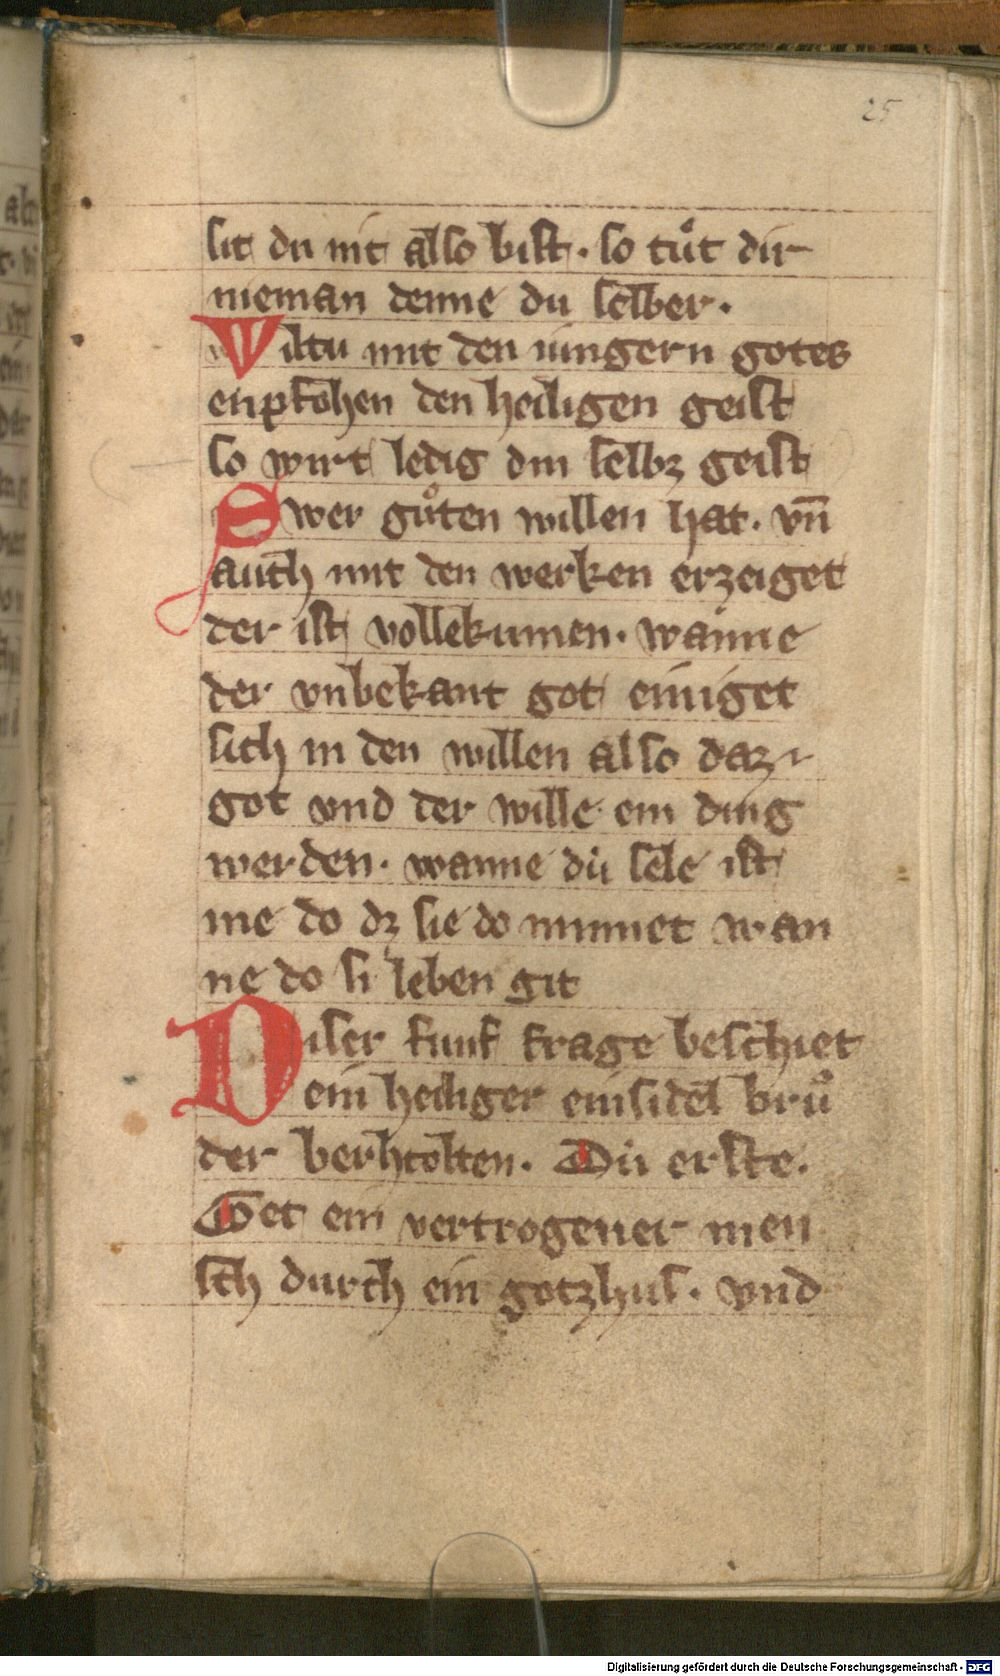 25
sit du nit also bist. so tuͦt dir
nieman denne du selber.
Wiltu mit den iungern gotes
enpfohen den heiligen geist
so wirt ledig din selbz geist
Swer guͦten willen hat. vn̄
auch mit den werken erzeiget
der ist vollekumen. wanne
der vnbekant got einiget
sich in den willen also daz
got vnd der wille ein ding
werden. wanne dú sele ist
me do dz sie do minnet wan
ne do si leben git
Diser funf frage beschiet
ein heiliger einsidel bruͦ
der berhtolten. Dú erste.
Get ein vertrogener men
sch durch ein gotzhus. vnd
Digitalisierung gefördert durch die Deutsche Forschungsgemeinschaft - DFG